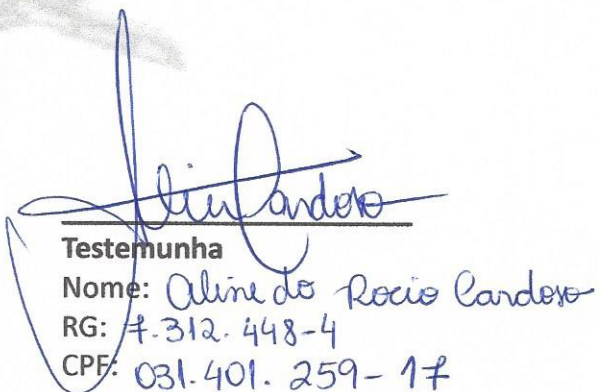 Aline Cardoso
Testemunha
Nome: Aline do Rocio Cardoso
RG: 7.312.448-4
CPF: 031.401.259-17